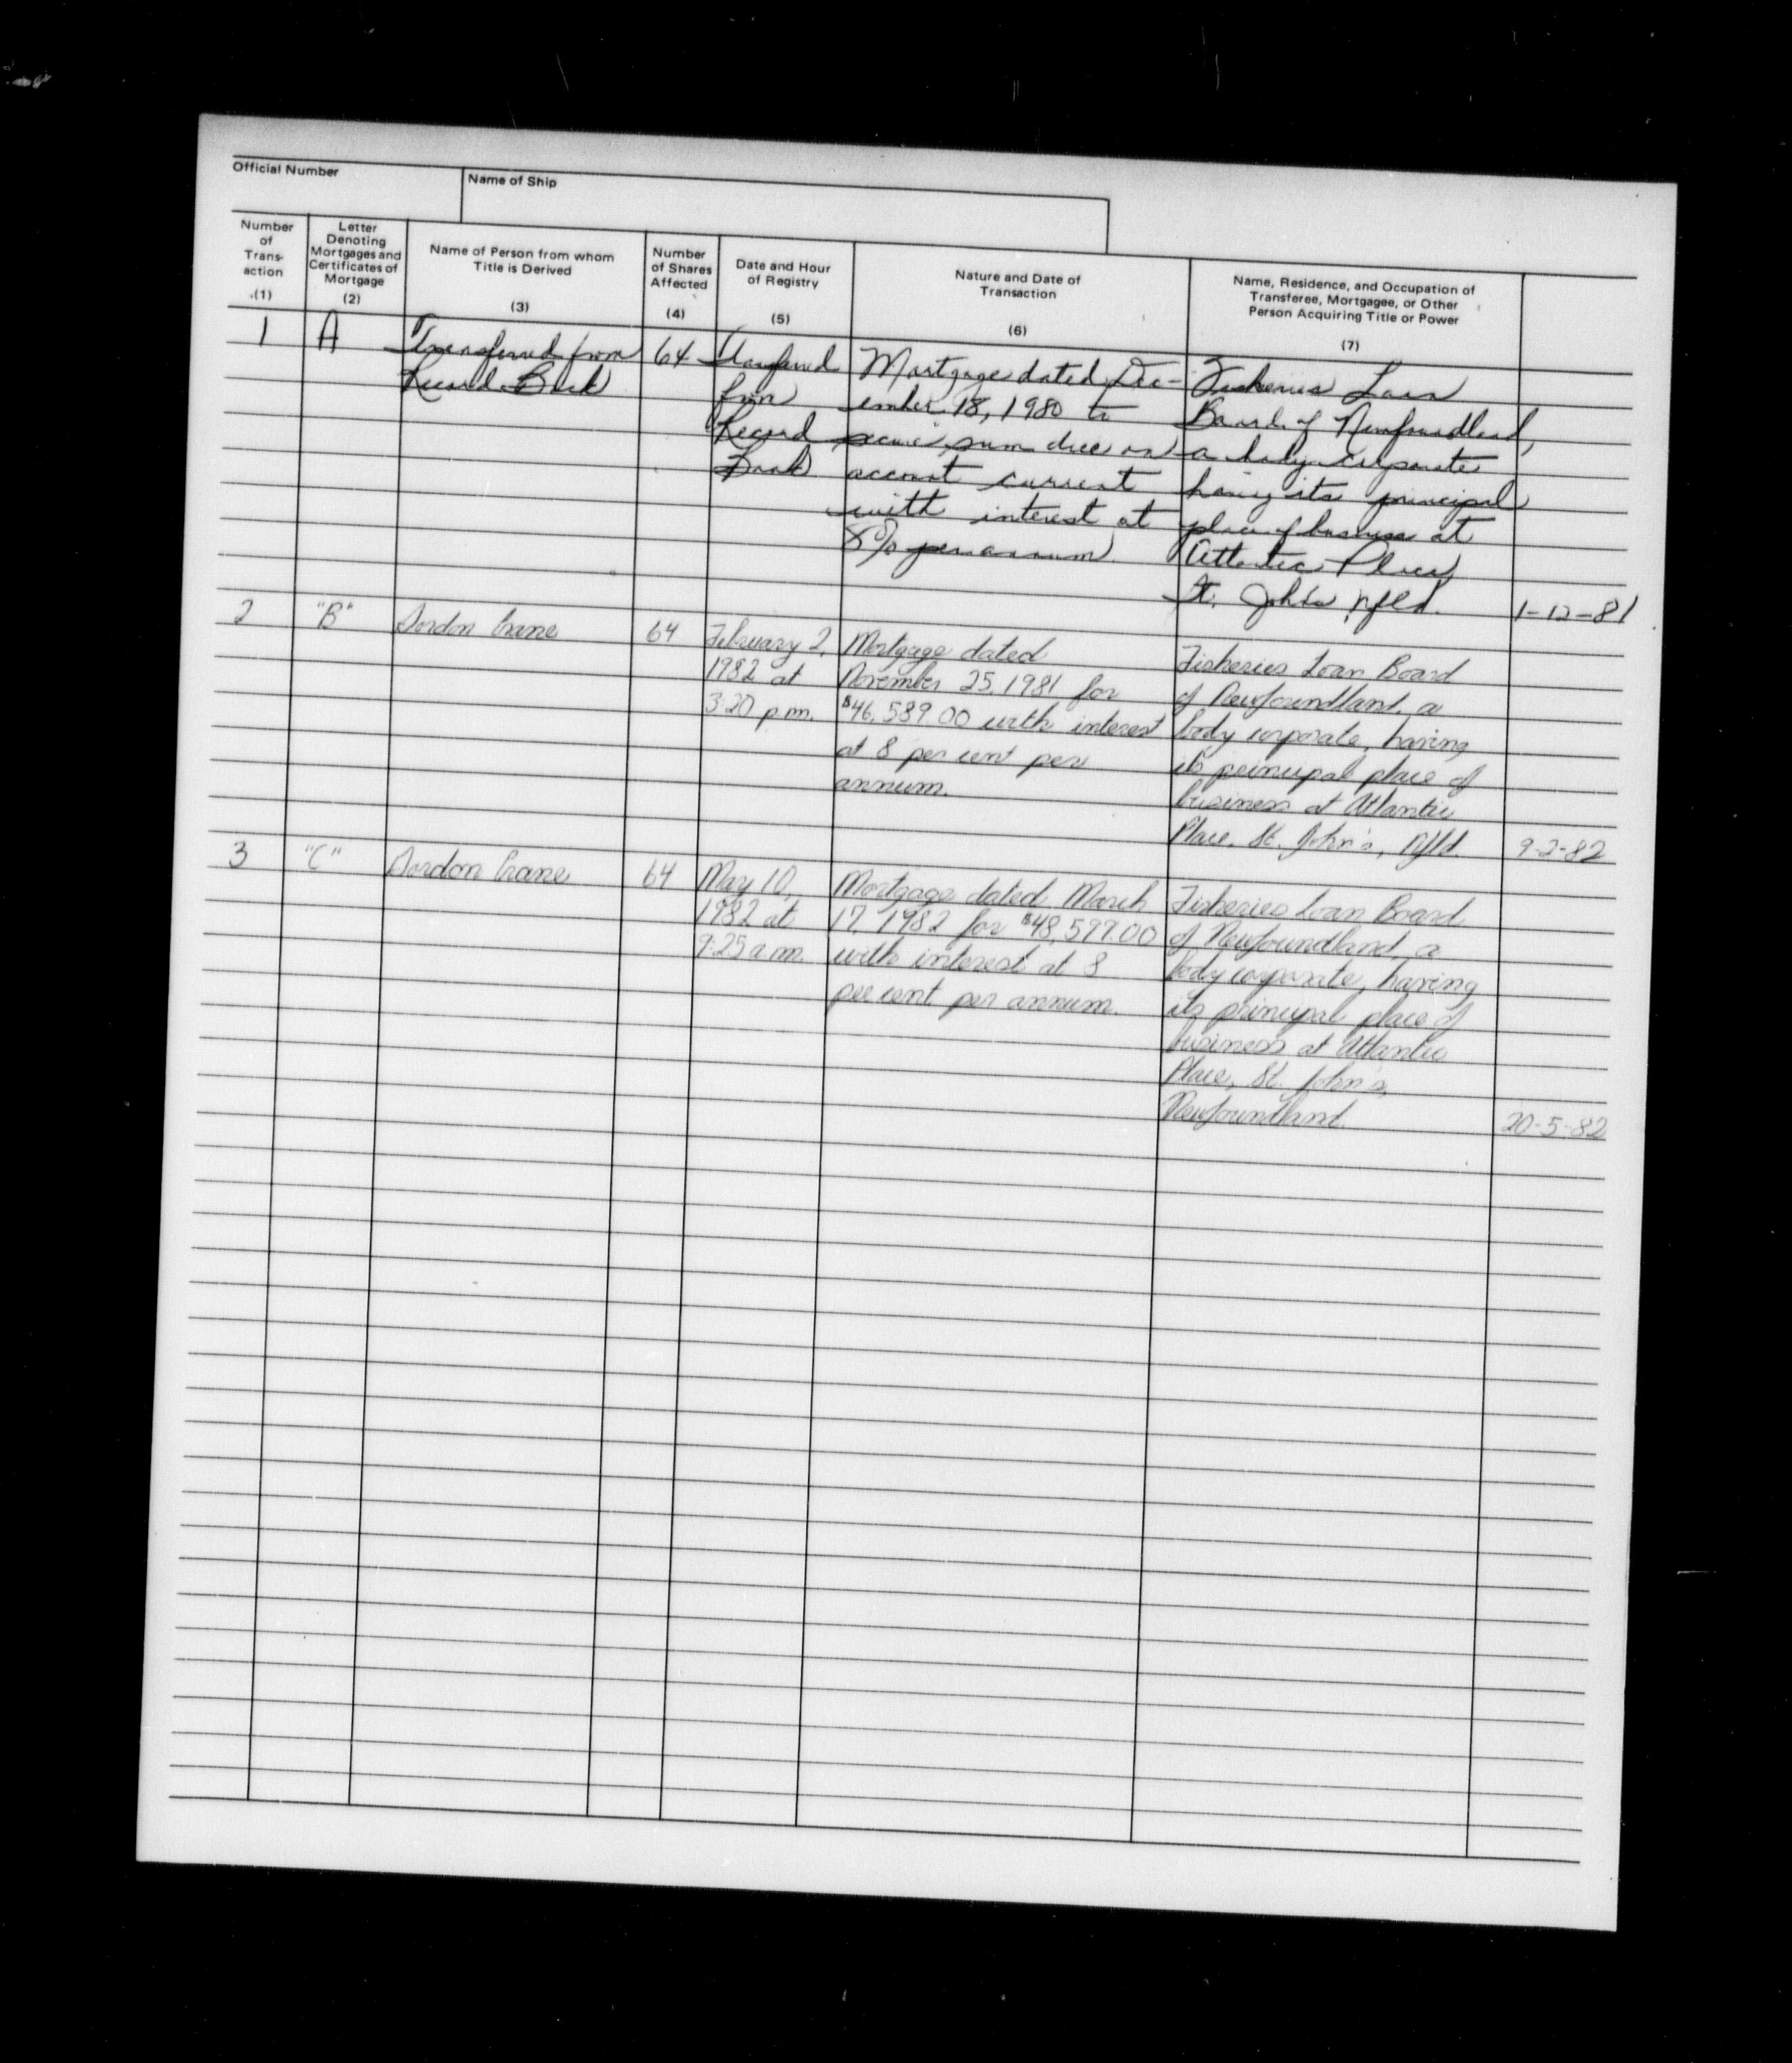 Official Number
Name of Ship
Number of Trans-action (1)
Letter Denoting Mortgages and Certificates of Mortgage (2)
Name of Person from whom Title is Derived (3)
Number of Shares Affected (4)
Date and Hour of Registry (5)
Nature and Date of Transaction (6)
Name, Residence, and Occupation of Transferee, Mortgagee, or Other Person Acquiring Title or Power (7)
1
A
Transferred from
Record Book
64
Transferred
from
Record
Book
Mortgage dated Dec-
ember 18, 1980 to
secure sum due on
account current
with interest at
8% per annum
Fisheries Loan
Board of Newfoundland,
a body corporate
having its principal
place of business at
Atlantic Place,
St. John's, Nfld.
1-12-81
2
"B"
Gordon Crane
64
February 2,
1982 at
3:20 p.m.
Mortgage dated
November 25, 1981 for
$46,589.00 with interest
at 8 per cent per
annum.
Fisheries Loan Board
of Newfoundland, a
body corporate, having
its principal place of
business at Atlantic
Place, St. John's, Nfld.
9-2-82
3
"C"
Gordon Crane
64
May 10,
1982 at
9:25 a.m.
Mortgage dated March
17, 1982 for $48,599.00
with interest at 8
per cent per annum.
Fisheries Loan Board
of Newfoundland, a
body corporate, having
its principal place of
business at Atlantic
Place, St. John's,
Newfoundland.
20-5-82